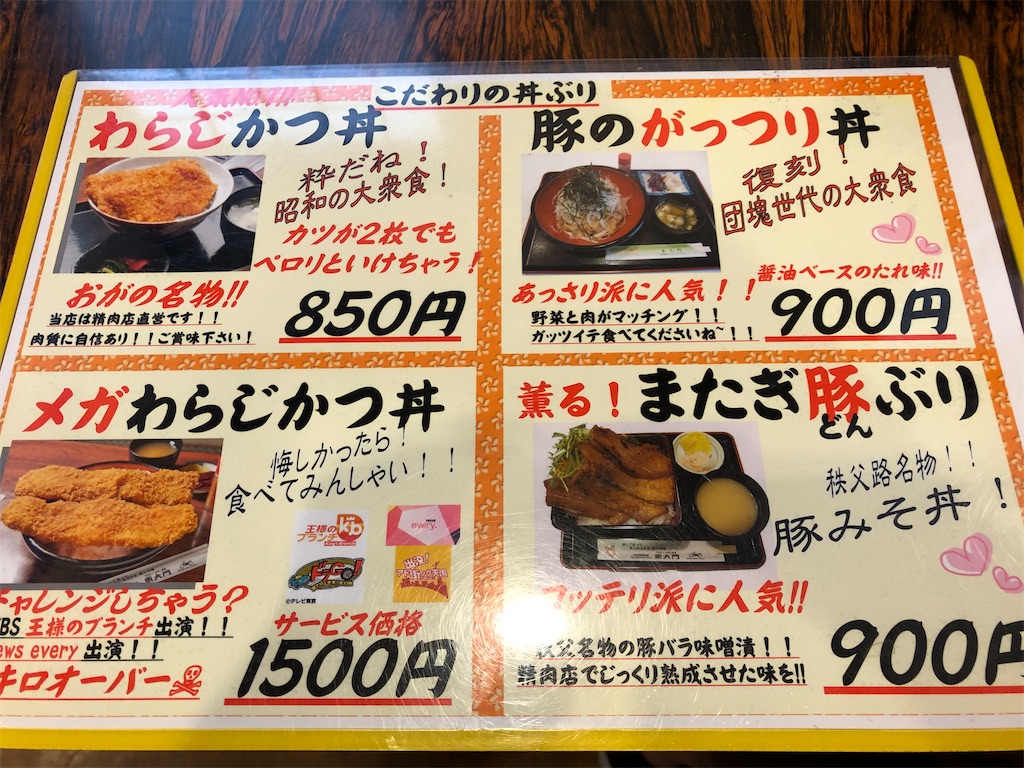 こだわりの丼ぶり
わらじかつ丼
粋だね！
昭和の大衆食！
カツが2枚でも
ペロリといけちゃう！
おがの名物!!
当店は精肉店直営です！！
肉質に自信あり！！ご賞味下さい！
850円
豚のがっつり丼
復刻！
団塊世代の大衆食
醤油ベースのたれ味!!
あっさり派に人気！！
野菜と肉がマッチング！！
ガッツイテ食べてくださいね~！！
900円
メガわらじかつ丼
悔しかったら！
食べてみんしゃい！！
王様の
ブランチ
kb
every.
出没！
アド街ック天国
©テレビ東京
東大門
チャレンジしちゃう？
BS 王様のブランチ出演！！
ews every 出演！！
キロオーバー
サービス価格
1500円
薫る！またぎ豚ぶり
どん
秩父路名物！！
豚みそ丼！
東大門
コッテリ派に人気!!
秩父名物の豚バラ味噌漬！！
精肉店でじっくり熟成させた味を!!
900円